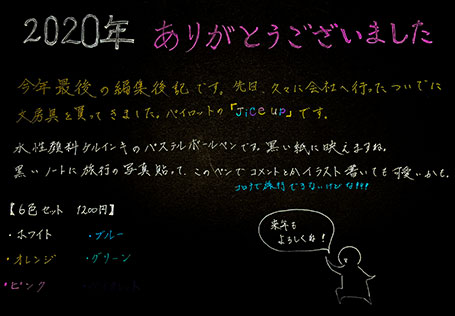 2020年 ありがとうございました
今年最後の編集後記です。先日、久々に会社へ行ったついでに
文房具を買ってきました。パイロットの「Juice up」です。
水性顔料ゲルインキのパステルボールペンです。黒い紙に映えますね。
黒いノートに旅行の写真貼って、このペンでコメントとかイラスト書いても可愛いかも。
コロナで旅行できないけどな!!!
【6色セット 1200円】
・ホワイト ・ブルー
・オレンジ ・グリーン
・ピンク ・バイオレット
来年も
よろしくね!